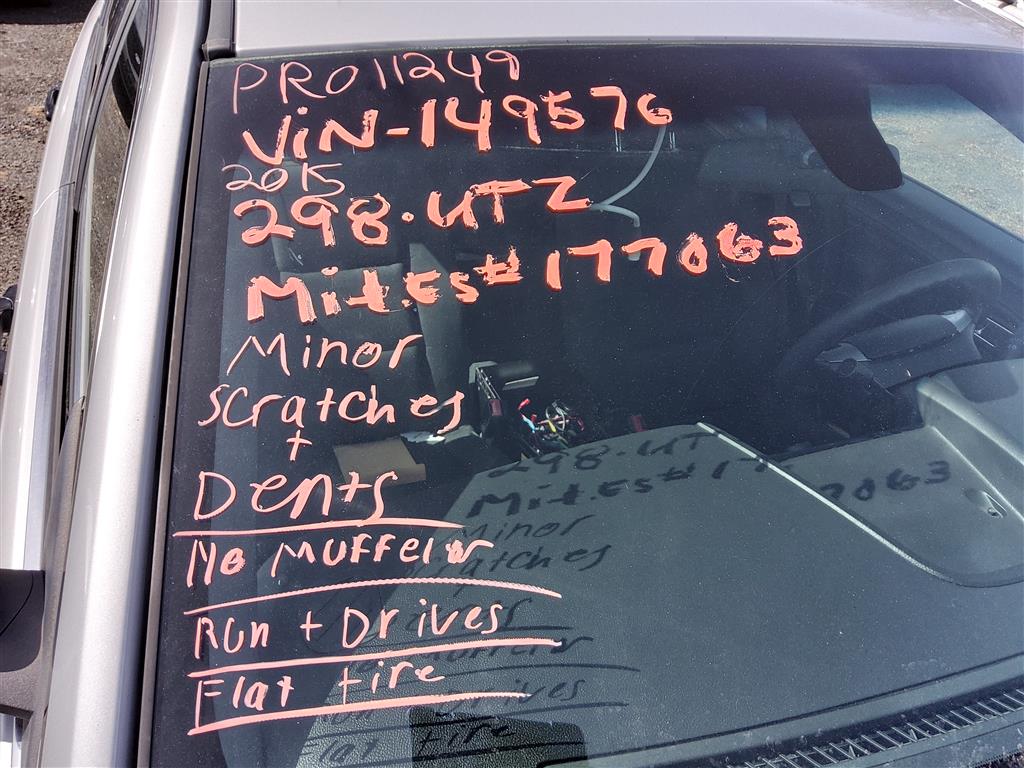 PRO11249
ViN-149576
2015
298.UTZ
Mit.Es# 177063
Minor
scratches
+
Dents
No Muffler
Run + Drives
Flat tire